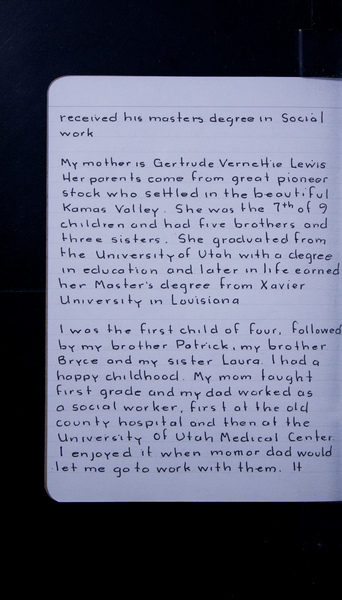 received his masters degree in Social
work
My mother is Gertrude Vernettie Lewis
Her parents came from great pioneer
stock who settled in the beautiful
Kamas Valley. She was the 7th of 9
children and had five brothers and
three sisters. She graduated from
the University of Utah with a degree
in education and later in life earned
her Master's degree from Xavier
University in Louisiana
I was the first child of four, followed
by my brother Patrick, my brother
Bryce and my sister Laura. I had a
happy childhood. My mom taught
first grade and my dad worked as
a social worker, first at the old
county hospital and then at the
University of Utah Medical Center.
I enjoyed it when mom or dad would
let me go to work with them. It